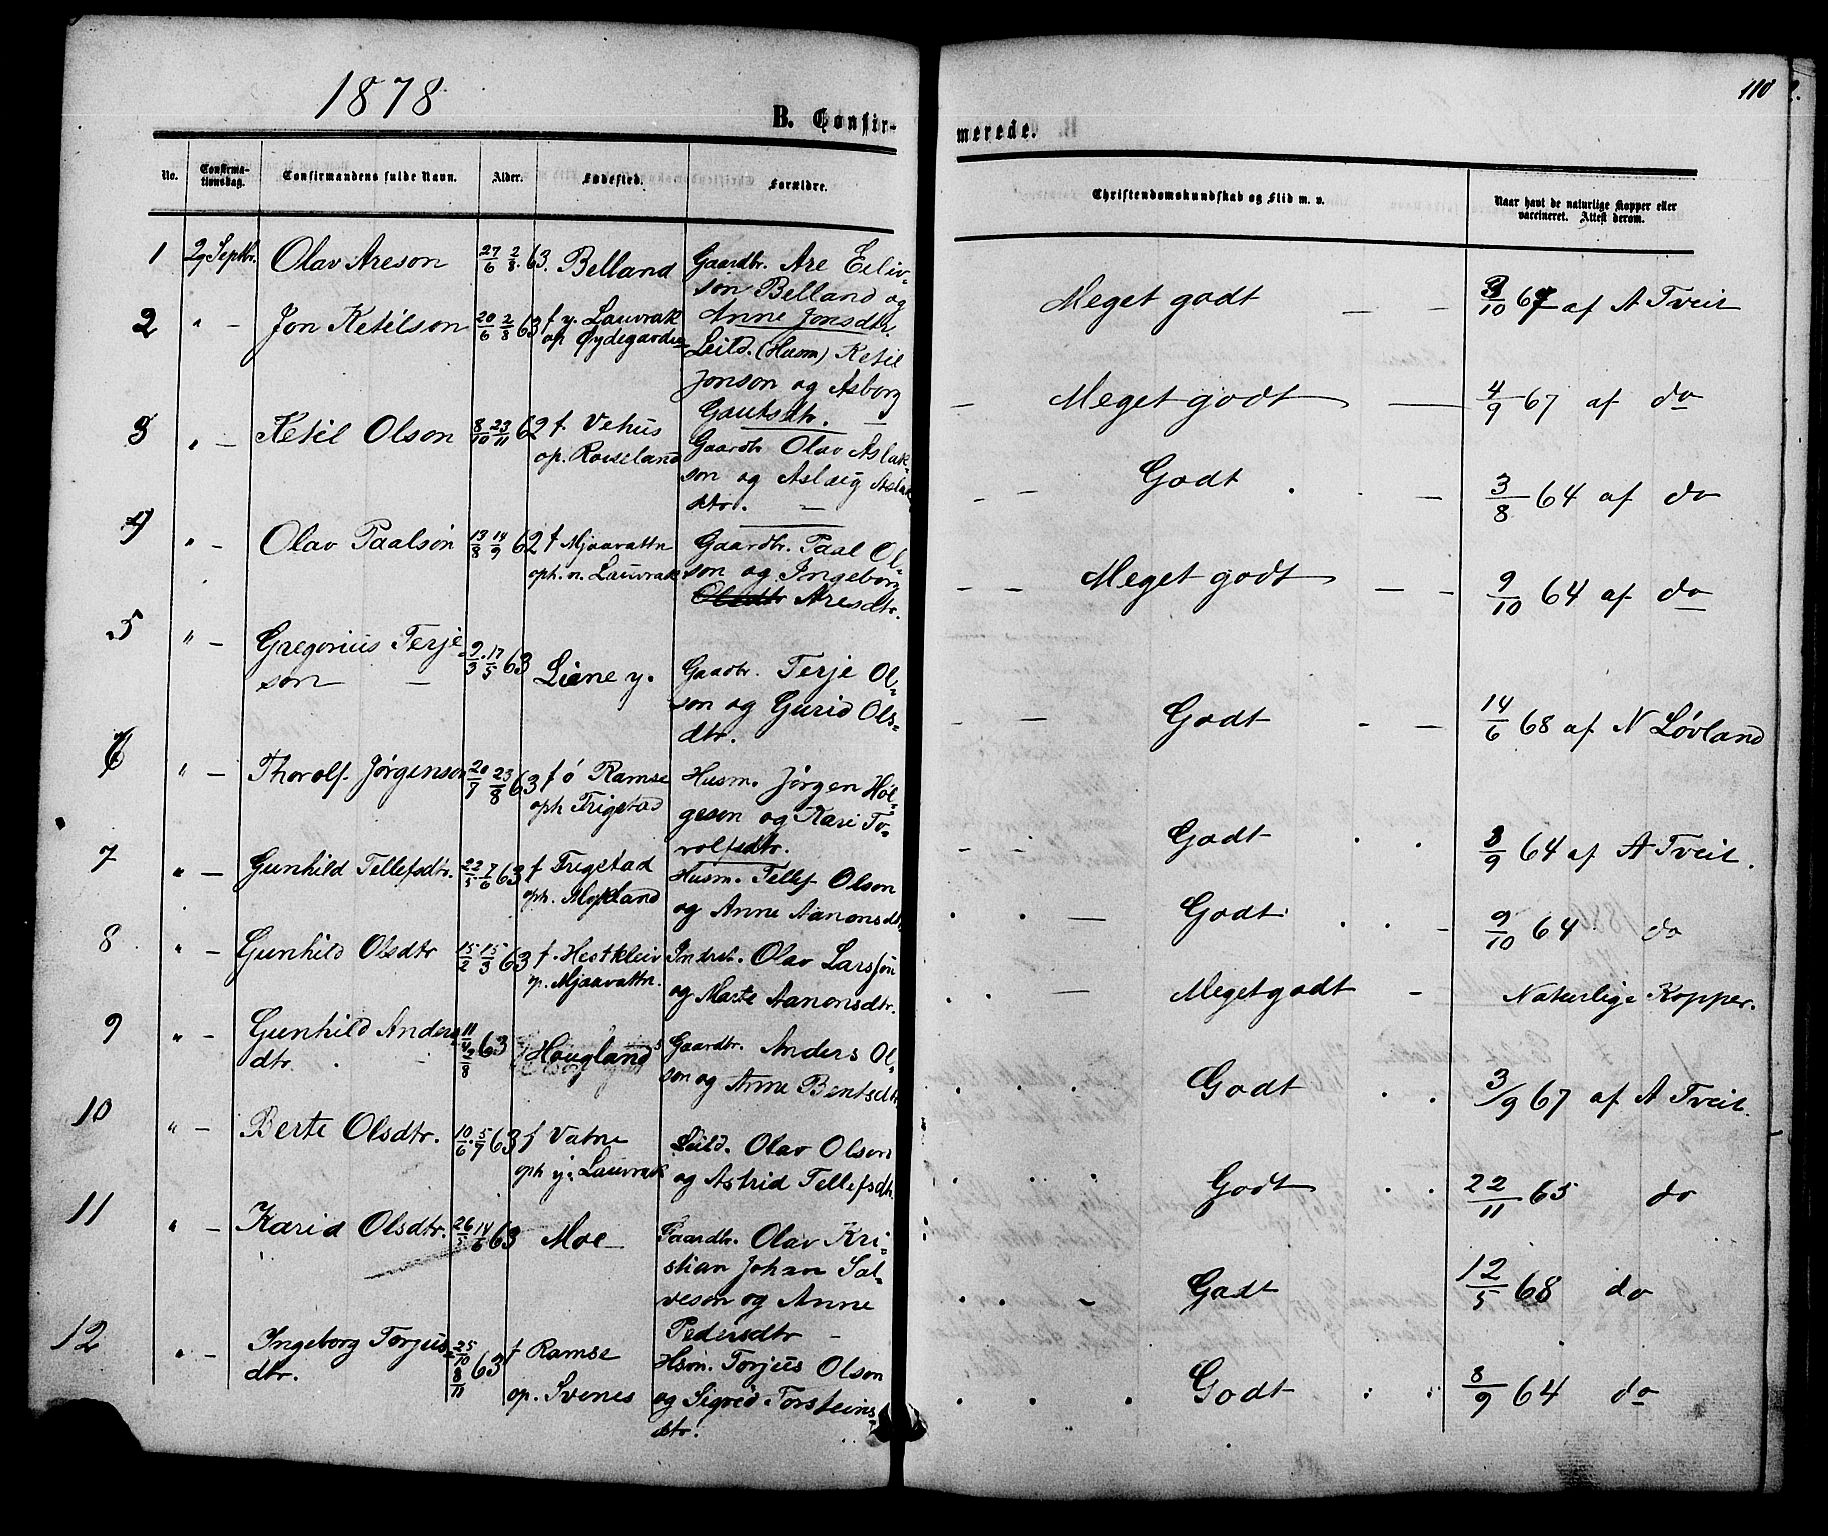 1878
B. Confir-
merede.
110
No.
Confirma-
tionsdag.
Confirmandens fulde Navn.
Alder.
Fødested.
Forældre.
Christendomskundskab og Flid m. v.
Naar havt de naturlige Kopper eller
vaccineret. Attest derom.
1 29 Septbr. Olav Areson 27/6 2/8. 63. Belland Gaardbr. Are Eiliv-
son Belland og
Anne Jonsdtr.
Meget godt — — 3/10 67 af A Tveit
2 " — Jon Ketilson 20/6 2/8 63 f y. Lauvrak
op Øydegarden
Leild. (Husm) Ketil
Jonson og Asborg
Gautsdtr. —
— Meget godt — 4/9 67 af do
3 " — Ketil Olson 8/10 23/11 62 f Vehus
op. Roiseland
Gaardbr Olav Aslak-
son og Aslaug Aslak
dtr. —
— — Godt . . — 3/8 64 af do
4 " — Olav Paalson 13/8 14/9 62 f Mjaavattn
oph. n. Lauvrak
Gaardbr. Paal Ol-
son og Ingeborg
Olsdtr Aresdtr.
— — Meget godt — — 9/10 64 af do
5 " — Gregorius Terje-
son —
9/3 17/5 63 Liene y. Gaardbr. Terje Ol-
son og Gurid Ols-
dtr.
— — Godt — — 14/6 68 af N Løvland
6 " — Thorolf Jørgenson 20/7 23/8 63 f ø Ramse
oph Trigstad
Husm. Jørgen Høl-
geson og Kari To-
rolfsdtr.
— — Godt . . 3/9 64 af A Tveit.
7 " — Gunhild Tellefsdtr. 22/5 7/6 63 f Trigstad
oph. Mykland
Husm. Tellef Olson
og Anne Aanonsdtr
. . — Godt . . . 9/10 64 do
8 " — Gunhild Olsdtr 15/2 15/3 63 f. Hestkleiv
op. Mjaavattn.
Inderst. Olav Larsson
og Marte Aanonsdtr.
. . — Meget godt — Naturlige Kopper.
9 " — Gunhild Anders
dtr. . —
11/4 2/8 63 Hougland Gaardbr. Anders Ol-
son og Anne Bentsdtr
. . . Godt . . 3/9 67 af A Tveit.
10 " — Berte Olsdtr. 10/6 5/7 63 f Vatne
oph y. Lauvrak
Leild. Olav Olson
og Astrid Tellefsdtr.
. . . Godt . . 22/11 65 do
11 " — Karid Olsdtr. 26/5 14/6 63 Moe — Gaardbr. Olav Kri-
stian Johan Sal-
veson og Anne
Pedersdtr —
. . — Godt 12/5 68 do
12 " — Ingeborg Torjus-
dtr.
25/10 8/11 63 f Ramse
op. Svenes
Hsm. Torjus Olson
og Sigrid Torsteins-
dtr.
. . . Godt : : 8/9 64 do